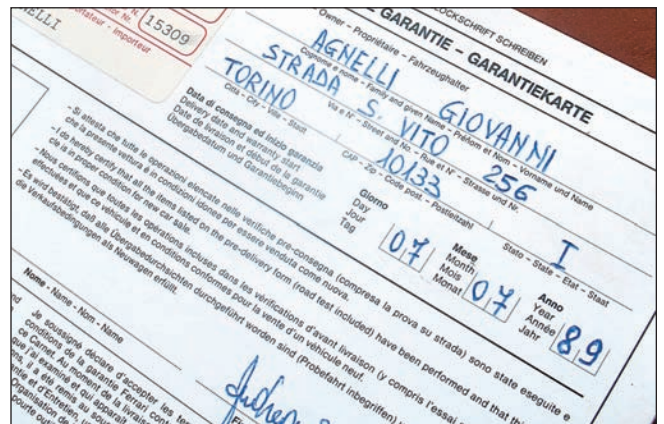 LOCKSCHRIFT SCHREIBEN
GARANTIE – GARANTIEKARTE
Owner – Propriétaire – Fahrzeughalter
AGNELLI GIOVANNI
Cognome e nome – Family and given Name – Prénom et Nom – Vorname und Name
STRADA S. VITO 256
Via e N° – Street and No. – Rue et N° – Strasse und Nr.
TORINO 10133 I
Città – City – Ville – Stadt CAP – Zip – Code post. – Postleitzahl Stato – State – Etat – Staat
N.
Nr.
15309
Importateur – Importeur
NELLI
Data di consegna ed inizio garanzia
Delivery date and warranty start
Date de livraison et début de la garantie
Übergabedatum und Garantiebeginn
Giorno
Day
Jour
Tag
07
Mese
Month
Mois
Monat
07
Anno
Year
Année
Jahr
89
- Si attesta che tutte le operazioni elencate nelle verifiche pre-consegna (compresa la prova su strada) sono state eseguite e
che la presente vettura è in condizioni idonee per essere venduta come nuova.
- I do hereby certify that all the items listed on the pre-delivery form (road test included) have been performed and that this
cle is in proper condition for new car sale.
- Nous certifions que toutes les opérations incluses dans les vérifications d'avant livraison (y compris l'essai
effectuées et que ce véhicule et en conditions conformes pour la vente d'un véhicule neuf.
- Es wird bestätigt, daß alle Übergabedurchsichten durchgeführt worden sind (Probefahrt inbegriffen)
die Verkaufsbedingungen als Neuwagen erfüllt.
Nome - Name - Nom - Name
Je soussigné déclare d'accepter les
conditions de la garantie Ferrari
ce Carnet. Au moment de la livraison
que j'ai examiné et qui
ons, il a été remis au
ntie et d'Entretien,
Organisation